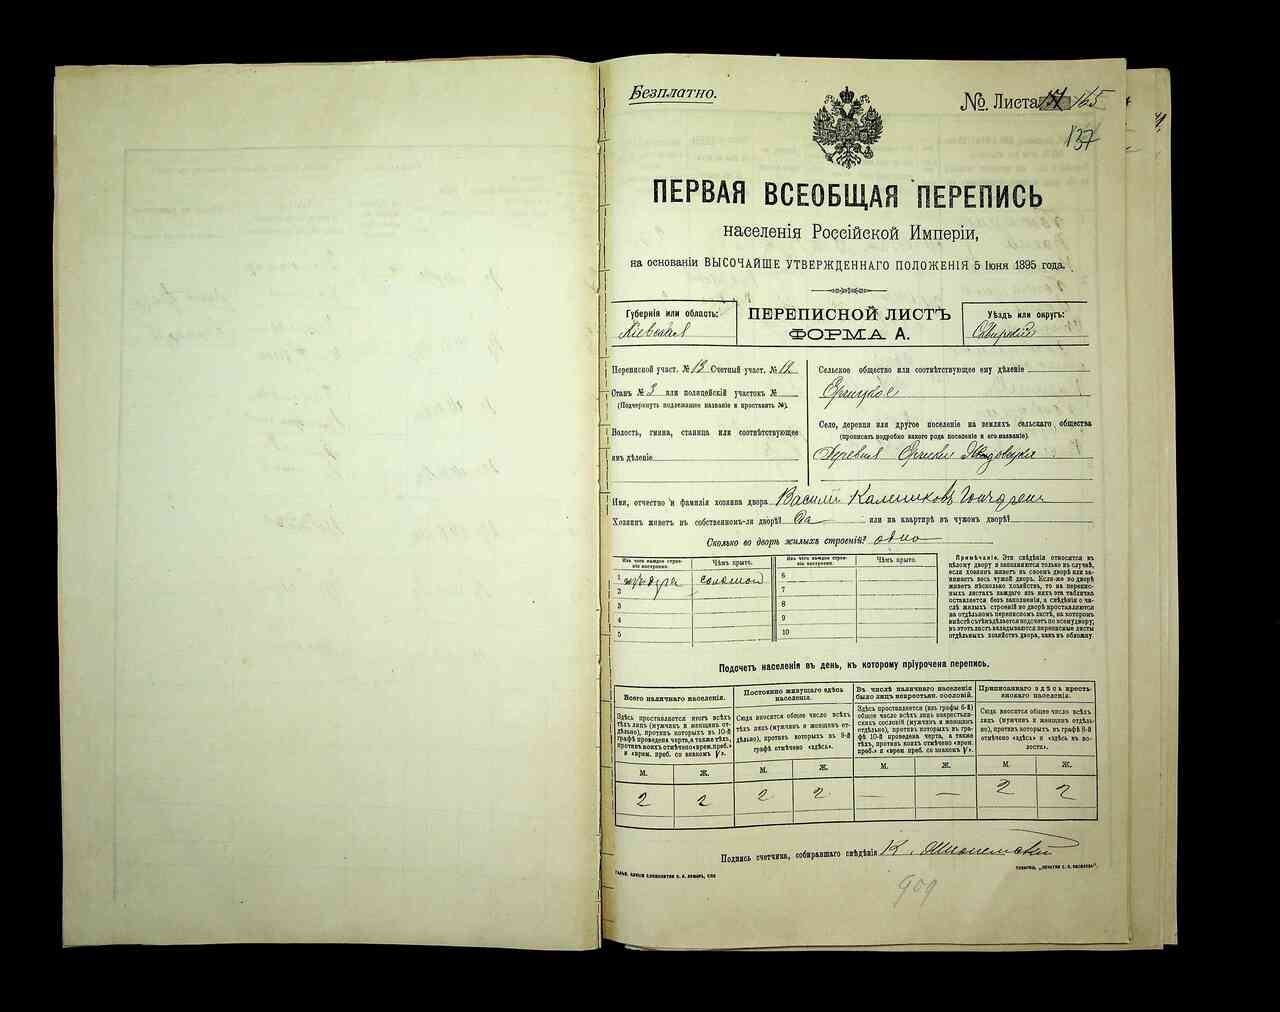 Безплатно.
№. Листа 165
137
ПЕРВАЯ ВСЕОБЩАЯ ПЕРЕПИСЬ
населенія Россійской Имперіи,
на основаніи ВЫСОЧАЙШЕ УТВЕРЖДЕННАГО ПОЛОЖЕНІЯ 5 Іюня 1895 года.
Губернія или область:
Кіевская
ПЕРЕПИСНОЙ ЛИСТЪ
ФОРМА А.
Уѣздъ или округъ:
Сквирскій
Переписной участ. № 13 Счетный участ. № 12
Станъ № 3 или полицейскій участокъ №
(Подчеркнуть подлежащее названіе и проставить №).
Волость, гмина, станица или соотвѣтствующее
имъ дѣленіе
Сельское общество или соотвѣтствующее ему дѣленіе
Село, деревня или другое поселеніе на земляхъ сельскаго общества
(прописать подробно какого рода поселеніе и его названіе).
Деревня
Имя, отчество и фамилія хозяина двора Василій Калениковъ Гончаренко
Хозяинъ живетъ въ собственномъ-ли дворѣ? Да или на квартирѣ въ чужомъ дворѣ?
Сколько во дворѣ жилыхъ строеній? одно
Изъ чего каждое строеніе построено.
Чѣмъ крыто.
Изъ чего каждое строеніе построено.
Чѣмъ крыто.
1 соломой 6
2 7
3 8
4 9
5 10
Примѣчаніе. Эти свѣдѣнія относятся къ
цѣлому двору и заполняются только въ случаѣ,
если хозяинъ живетъ въ своемъ дворѣ или занимаетъ
весь чужой дворъ. Если-же во дворѣ
живетъ нѣсколько хозяйствъ, то на переписныхъ
листахъ каждаго изъ нихъ эта табличка
оставляется безъ заполненія, а свѣдѣнія о числѣ
жилыхъ строеній во дворѣ проставляются
на отдѣльномъ переписномъ листѣ, на которомъ
вмѣстѣ съ тѣмъ дѣлается подсчетъ по всему двору;
въ этотъ листъ вкладываются переписные листы
отдѣльныхъ хозяйствъ двора, какъ въ обложку.
Подсчетъ населенія въ день, къ которому пріурочена перепись.
Всего наличнаго населенія.
Здѣсь проставляется итогъ всѣхъ
лицъ (мужчинъ и женщинъ отдѣльно),
противъ которыхъ въ 10-й
графѣ проведена черта, а также тѣхъ,
противъ коихъ отмѣчено «врем. преб.»
и «врем. преб. со знакомъ V».
Постоянно живущаго здѣсь
населенія.
Сюда вносится общее число всѣхъ
тѣхъ лицъ (мужчинъ и женщинъ отдѣльно),
противъ которыхъ въ 9-й
графѣ отмѣчено «здѣсь».
Въ числѣ наличнаго населенія
было лицъ некрестьян. сословій.
Здѣсь проставляется (изъ графы 6-й)
общее число всѣхъ лицъ некрестьянскихъ
сословій (мужчинъ и женщинъ
отдѣльно), противъ которыхъ въ графѣ
10-й проведена черта, а также
тѣхъ, противъ коихъ отмѣчено «врем.
преб.» и «врем. преб. со знакомъ V».
Приписаннаго здѣсь крестьянскаго
населенія.
Сюда вносится общее число всѣхъ
лицъ (мужчинъ и женщинъ отдѣльно),
противъ которыхъ въ графѣ 8-й
отмѣчено «здѣсь» и «здѣсь въ волости».
М. Ж. М. Ж. М. Ж. М. Ж.
2 2 2 2 — — 2 2
Подпись счетчика, собиравшаго свѣдѣнія К.
909